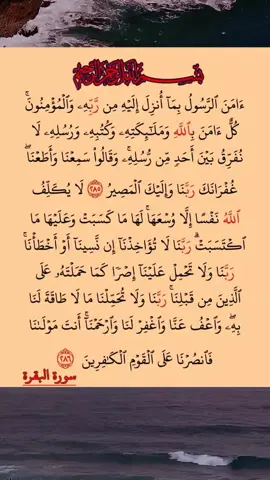 بسم الله الرحمن الرحيم
ءَامَنَ ٱلرَّسُولُ بِمَآ أُنزِلَ إِلَيْهِ مِن رَّبِّهِۦ وَٱلْمُؤْمِنُونَۚ
كُلٌّ ءَامَنَ بِٱللَّهِ وَمَلَـٰٓئِكَتِهِۦ وَكُتُبِهِۦ وَرُسُلِهِۦ لَا
نُفَرِّقُ بَيْنَ أَحَدٍ مِّن رُّسُلِهِۦۚ وَقَالُوا۟ سَمِعْنَا وَأَطَعْنَاۖ
غُفْرَانَكَ رَبَّنَا وَإِلَيْكَ ٱلْمَصِيرُ ٢٨٥ لَا يُكَلِّفُ
ٱللَّهُ نَفْسًا إِلَّا وُسْعَهَاۚ لَهَا مَا كَسَبَتْ وَعَلَيْهَا مَا
ٱكْتَسَبَتْۗ رَبَّنَا لَا تُؤَاخِذْنَآ إِن نَّسِينَآ أَوْ أَخْطَأْنَاۚ
رَبَّنَا وَلَا تَحْمِلْ عَلَيْنَآ إِصْرًا كَمَا حَمَلْتَهُۥ عَلَى
ٱلَّذِينَ مِن قَبْلِنَاۚ رَبَّنَا وَلَا تُحَمِّلْنَا مَا لَا طَاقَةَ لَنَا
بِهِۦۖ وَٱعْفُ عَنَّا وَٱغْفِرْ لَنَا وَٱرْحَمْنَآۚ أَنتَ مَوْلَىٰنَا
فَٱنصُرْنَا عَلَى ٱلْقَوْمِ ٱلْكَـٰفِرِينَ ٢٨٦
سورة البقرة